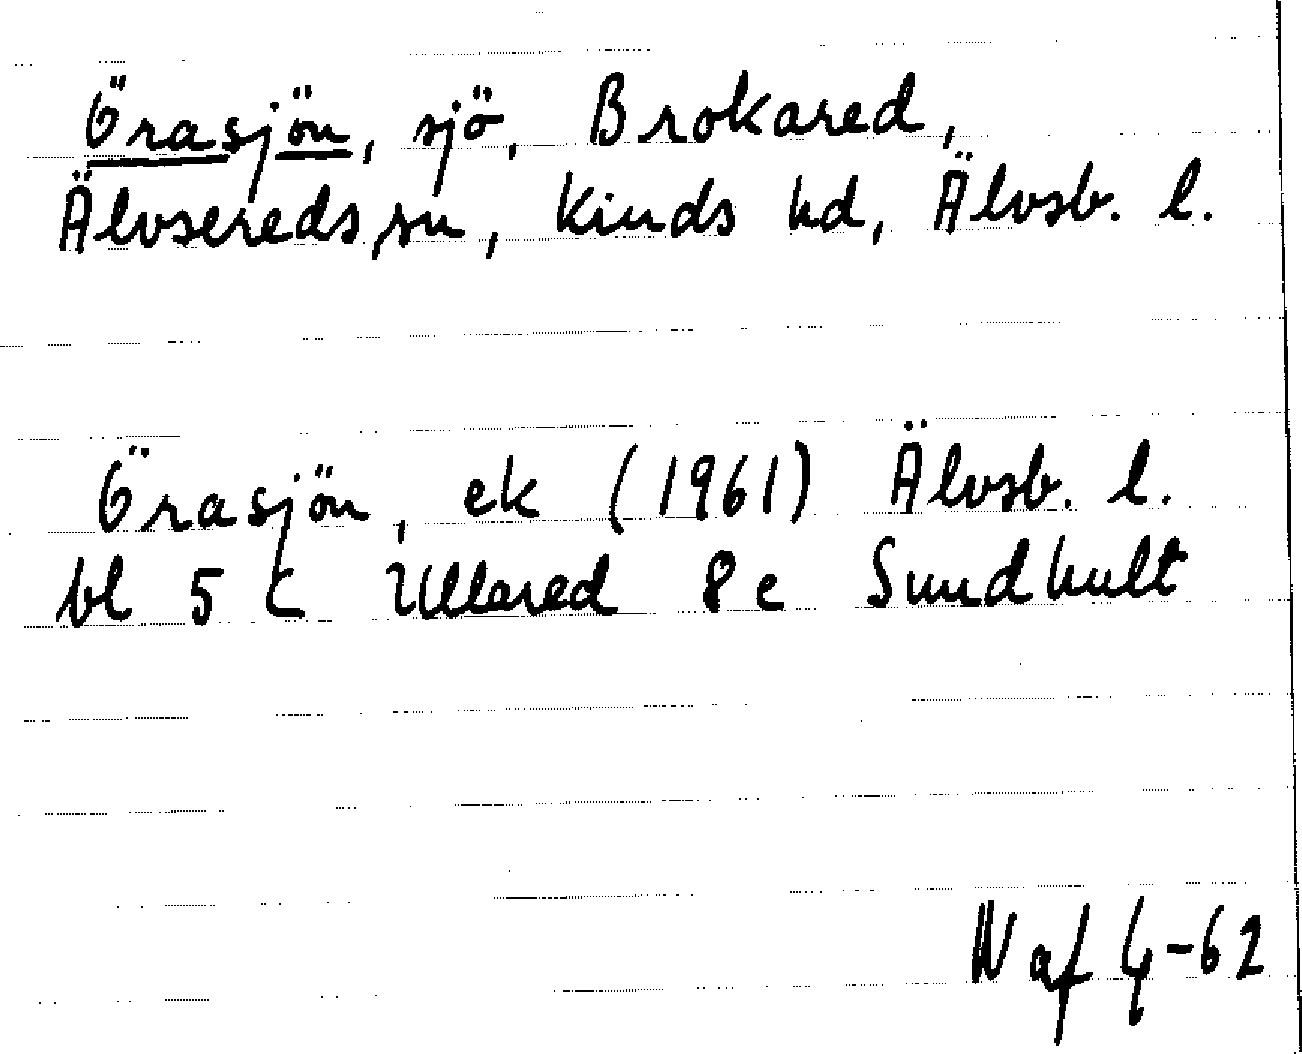 Örasjön, sjö, Brokared,
Älvsereds sn, Kinds hd, Älvsb. l.
Örasjön, ek (1961) Älvsb. l.
bl 5 C Ullared 8e Sundhult
W af 4-62